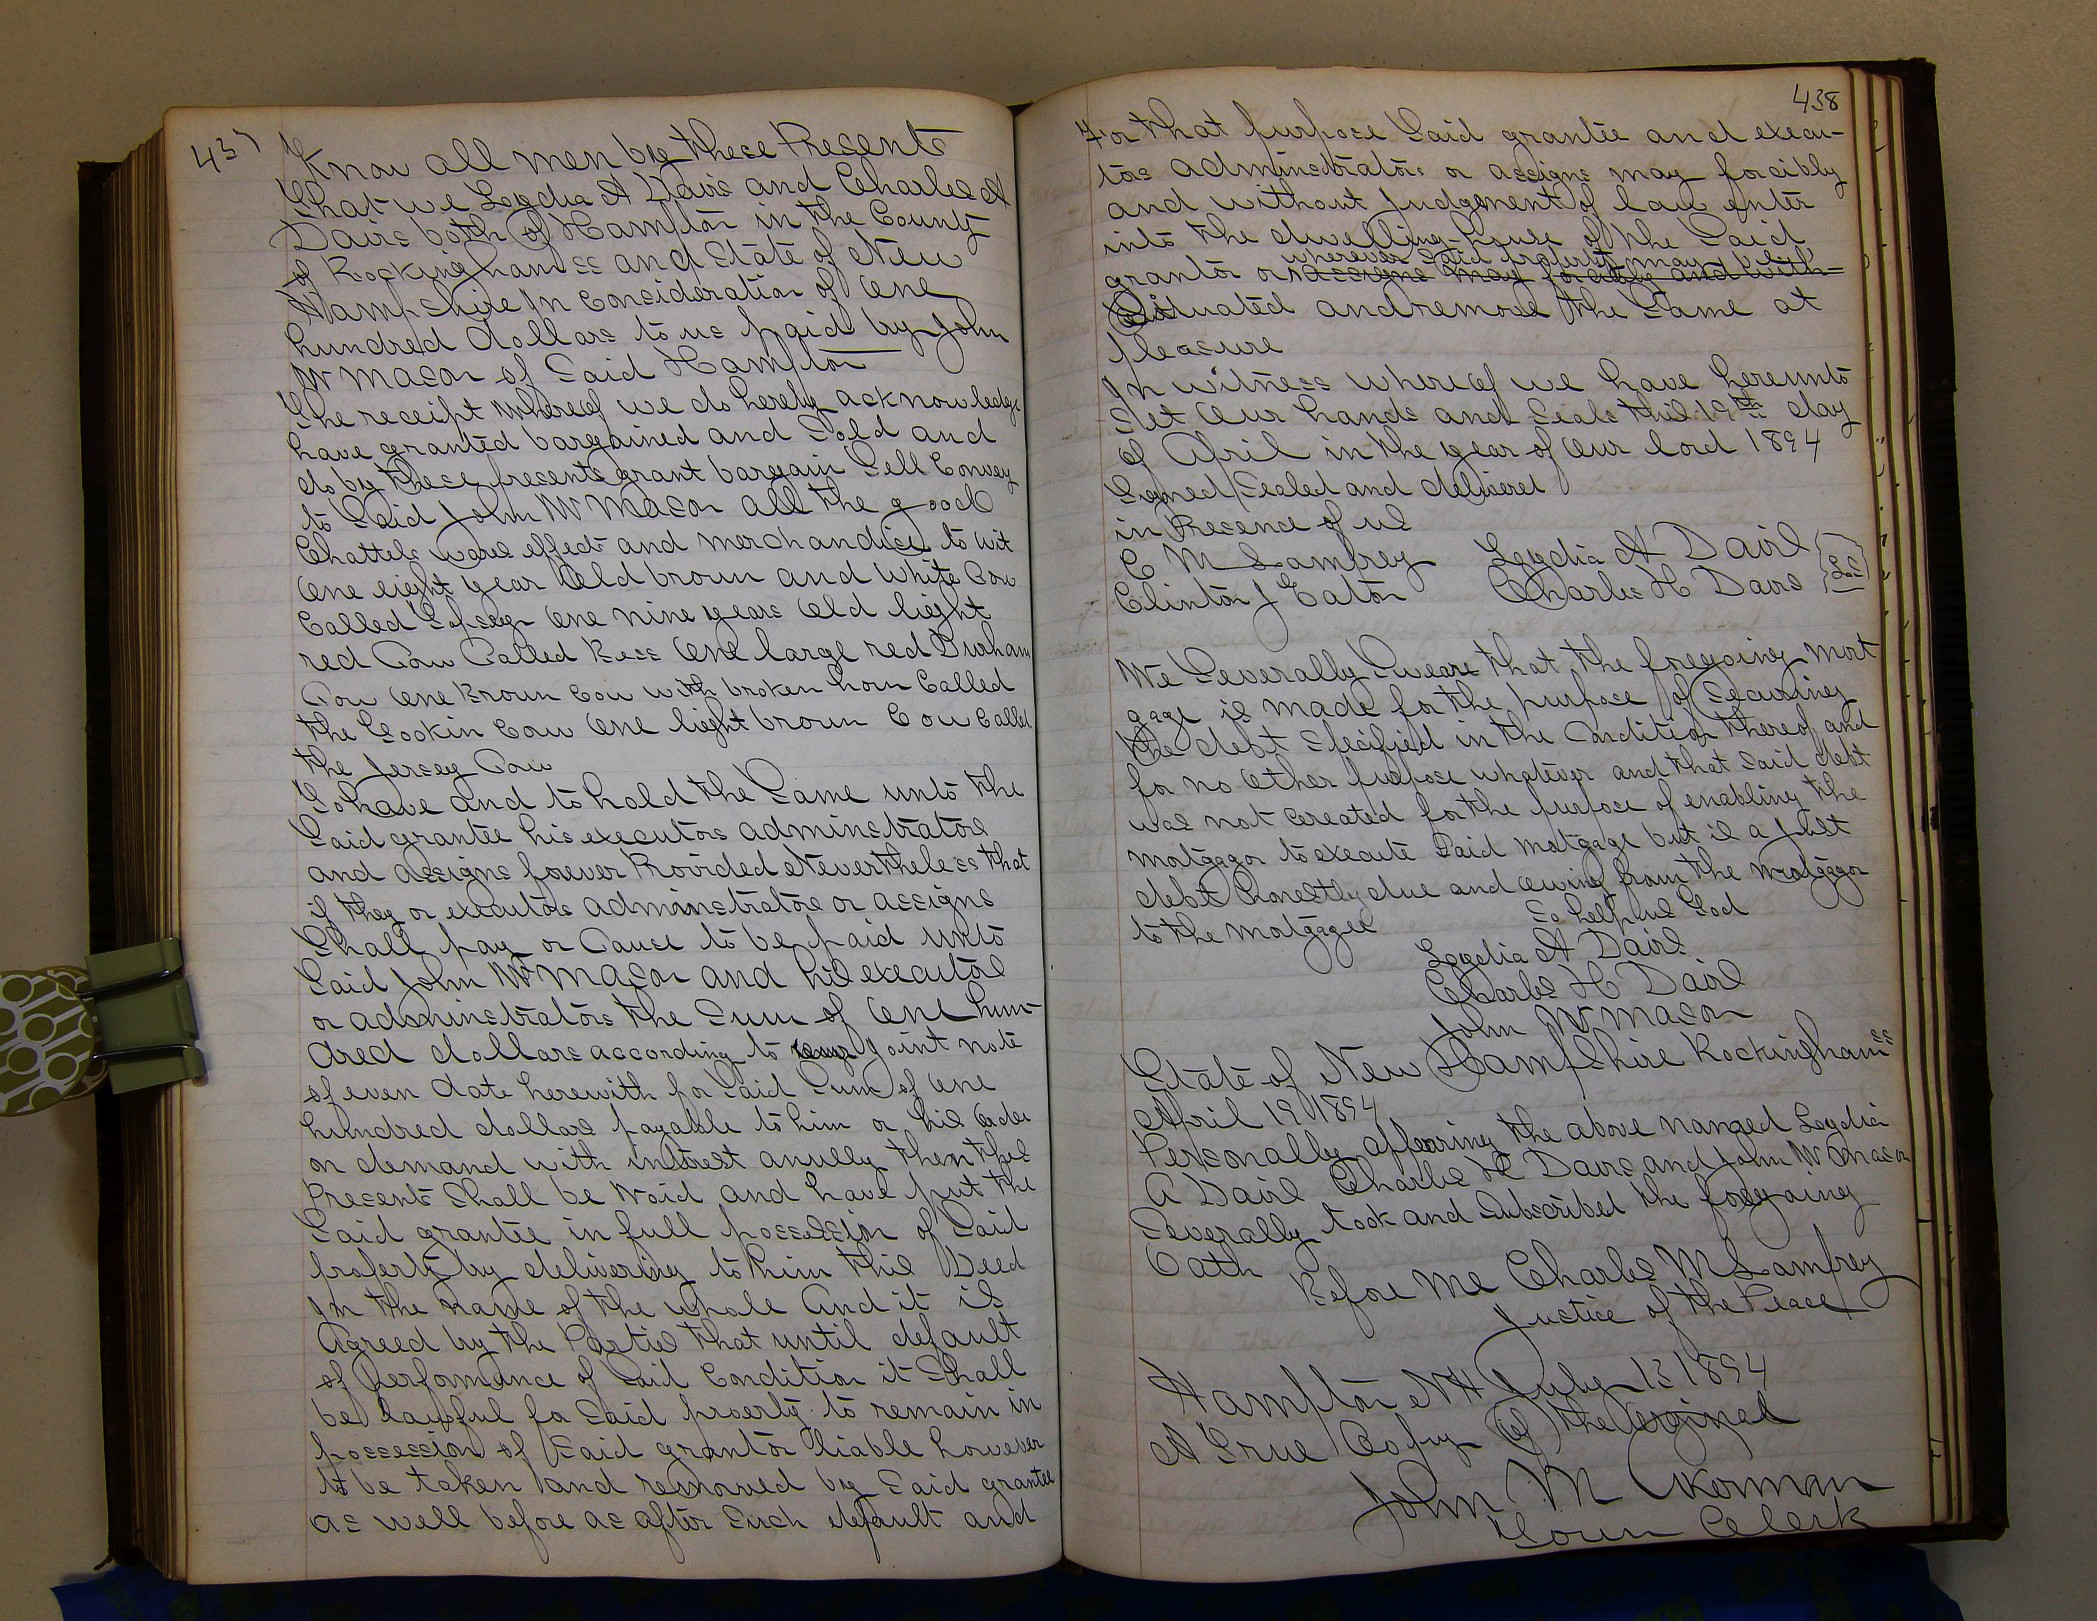 437
Know all men by these Presents
That we Lydia A Davis and Charles H
Davis both of Hampton in the County
of Rockingham ss and State of New
Hampshire In Consideration of One
hundred dollars to us paid by John
W Mason of Said Hampton
The receipt whereof we do hereby acknowledge
have granted bargained and Sold and
do by these presents grant bargain Sell Convey
to Said John W Mason all the goods
Chattels wares effects and merchandise to wit
One eight year Old brown and White Cow
Called Topsey One nine years Old light
red Cow Called Bess One large red Durham
Cow One Brown Cow with broken horn Called
the Gookin Cow One light brown Cow Called
the Jersey Cow
To have and to hold the Same unto the
Said grantee his executors adminstrators
and assigns forever Provided Nevertheless that
if they or executors adminstrators or assigns
Shall pay or Cause to be paid Unto
Said John W Mason and his executors
or adminstrators the Sum of One hun-
dred dollars according to Our Joint note
of even date herewith for Said Sum of One
hundred dollars payable to him or his Order
on demand with interest anully then thes
Presents Shall be Void and have put the
Said grantee in full possession of Said
property by delivering to him this Deed
In the name of the whole And it is
Agreed by the Parties that until default
of Performance of Said Condition it Shall
be lawful for Said proerty to remain in
possession of Said grantor liable however
to be taken and removed by Said grantee
as well before as after Such default and
438
For that purpose Said grantee and execu-
tors adminstrators or assigns may forcibly
and without Judgement of law enter
into the dwelling house of the Said
wherever Said property may be
grantor or assigns may forcibly and with
Situated and remove the Same at
pleasure
In witness whereof we have hereunto
Set Our hands and Seals this 19th day
of April in the year of Our lord 1894
Signed Sealed and delivered
in Presence of us
C M Lamprey Lydia A Davis
Clinton J Eaton Charles H Davis
We Severally Sweare that the foregoing mort
gage is made for the purpose of Securing
the debt specified in the Condition thereof and
for no Other purpose whatever and that said debt
was not Cereated for the purpose of enabling the
mortgagor to execute Said mortgage but is a Just
debt honestly due and owing from the mortgagor
to the mortgagee So help us God
Lydia A Davis
Charles H Davis
John W Mason
State of New Hampshire Rockingham ss
April 19 1894
Personally appearing the above named Lydia
A Davis Charles H Davis and John W Mason
Severally took and Subscribed the foregoing
Oath
Before Me Charles M Lamprey
Justice of the Peace
Hampton NH July 13 1894
A True Copy Of the Orginal
John M Akerman
Town Clerk